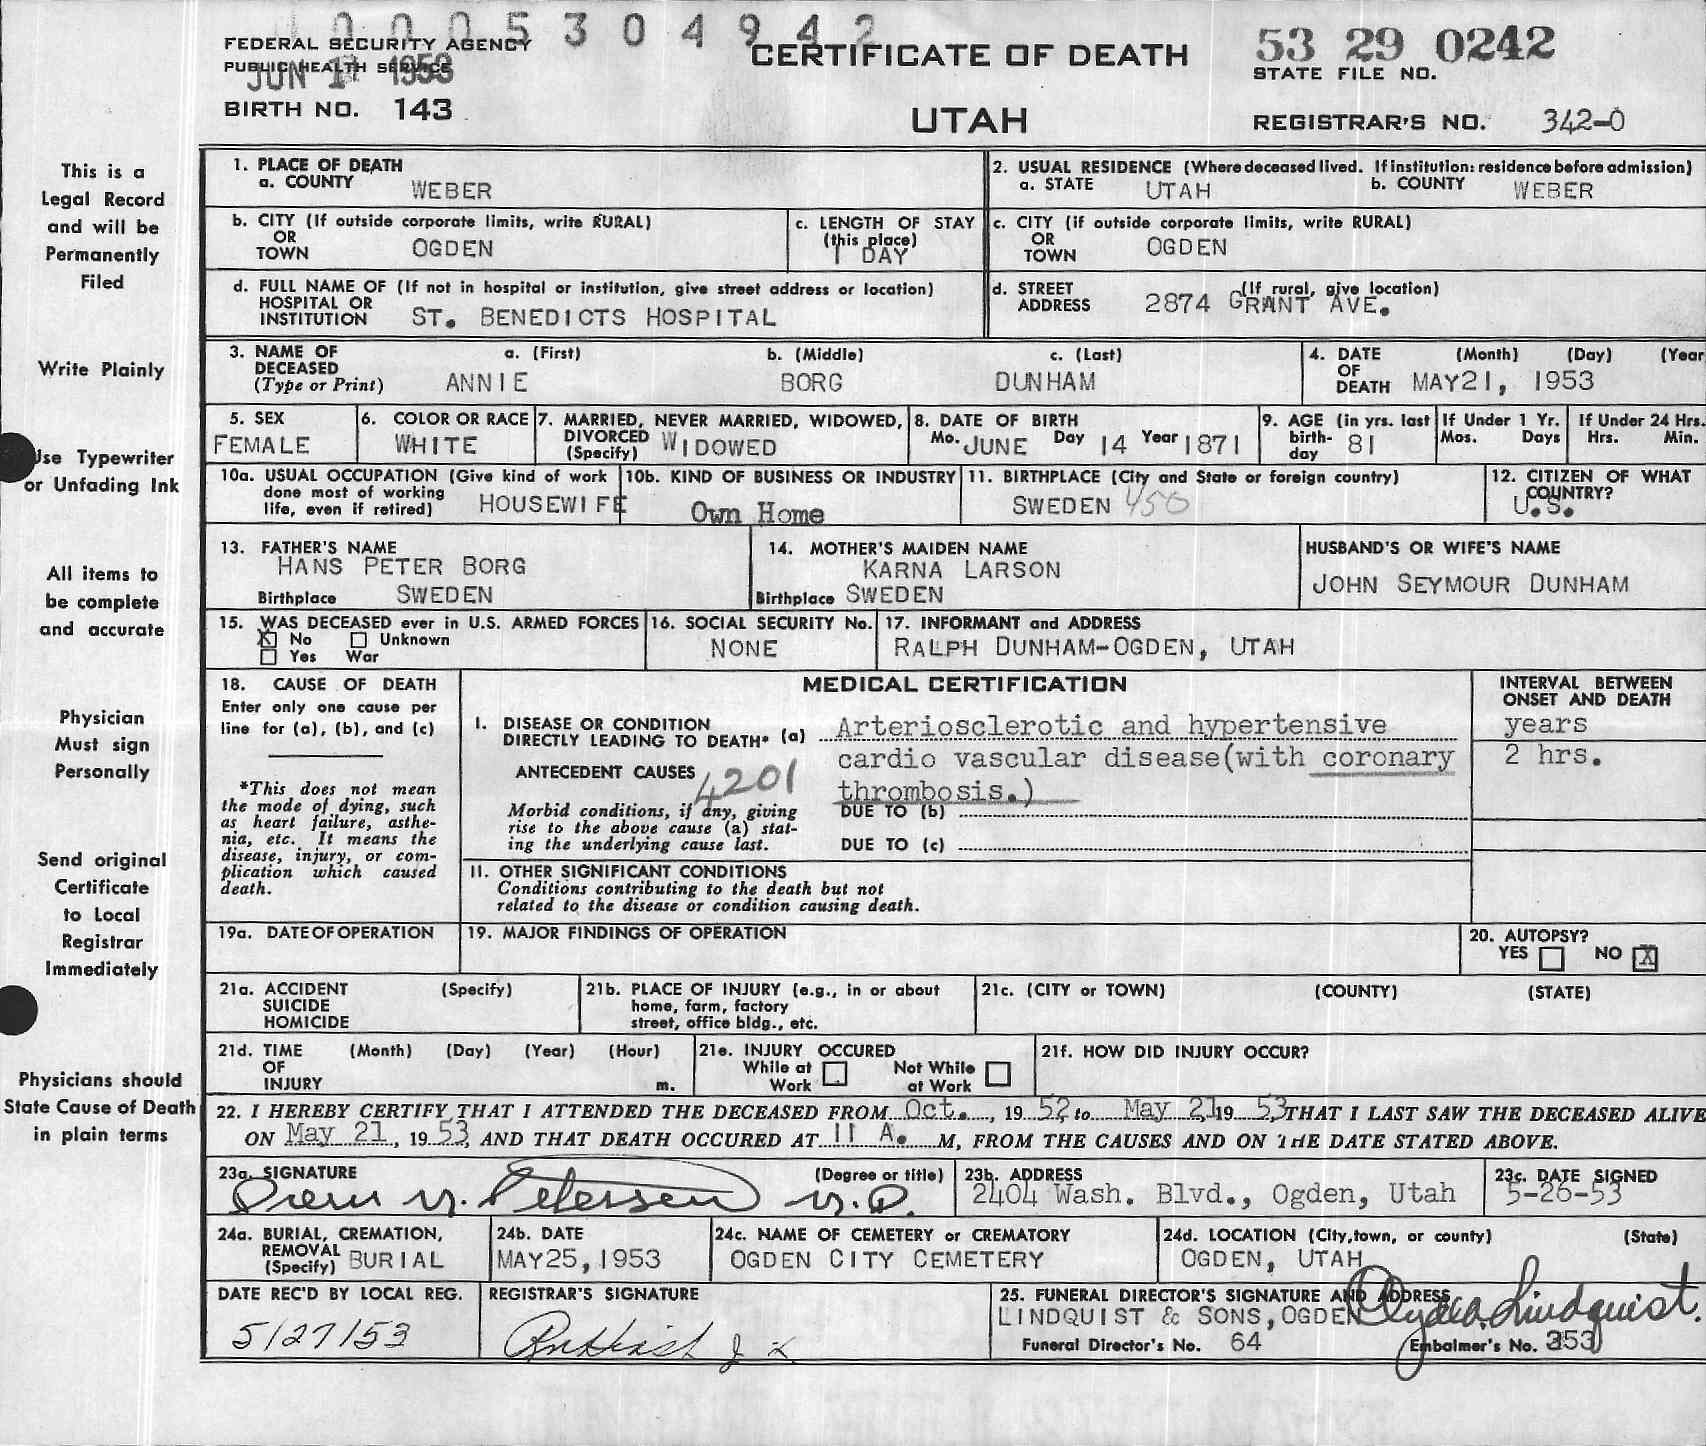 0005304942
FEDERAL SECURITY AGENCY
PUBLIC HEALTH SERVICE
JUN 1 1953
BIRTH NO. 143
CERTIFICATE OF DEATH
UTAH
53 29 0242
STATE FILE NO.
REGISTRAR'S NO. 342-0
This is a
Legal Record
and will be
Permanently
Filed
Write Plainly
Use Typewriter
or Unfading Ink
All items to
be complete
and accurate
Physician
Must sign
Personally
Send original
Certificate
to Local
Registrar
Immediately
Physicians should
State Cause of Death
in plain terms
1. PLACE OF DEATH
a. COUNTY WEBER
2. USUAL RESIDENCE (Where deceased lived. If institution: residence before admission)
a. STATE UTAH b. COUNTY WEBER
b. CITY (If outside corporate limits, write RURAL)
OR
TOWN OGDEN
c. LENGTH OF STAY
(this place)
1 DAY
c. CITY (if outside corporate limits, write RURAL)
OR
TOWN OGDEN
d. FULL NAME OF (If not in hospital or institution, give street address or location)
HOSPITAL OR
INSTITUTION ST. BENEDICTS HOSPITAL
d. STREET (If rural, give location)
ADDRESS 2874 GRANT AVE.
3. NAME OF a. (First) b. (Middle) c. (Last)
DECEASED
(Type or Print) ANNIE BORG DUNHAM
4. DATE (Month) (Day) (Year
OF
DEATH MAY21, 1953
5. SEX
FEMALE
6. COLOR OR RACE
WHITE
7. MARRIED, NEVER MARRIED, WIDOWED,
DIVORCED
(Specify) WIDOWED
8. DATE OF BIRTH
Mo. JUNE Day 14 Year 1871
9. AGE (in yrs. last
birth-
day 81
If Under 1 Yr.
Mos. Days
If Under 24 Hrs.
Hrs. Min.
10a. USUAL OCCUPATION (Give kind of work
done most of working
life, even if retired) HOUSEWIFE
10b. KIND OF BUSINESS OR INDUSTRY
Own Home
11. BIRTHPLACE (City and State or foreign country)
SWEDEN 450
12. CITIZEN OF WHAT
COUNTRY?
U.S.
13. FATHER'S NAME
HANS PETER BORG
Birthplace SWEDEN
14. MOTHER'S MAIDEN NAME
KARNA LARSON
Birthplace SWEDEN
HUSBAND'S OR WIFE'S NAME
JOHN SEYMOUR DUNHAM
15. WAS DECEASED ever in U.S. ARMED FORCES
X No Unknown
Yes War
16. SOCIAL SECURITY No.
NONE
17. INFORMANT and ADDRESS
RALPH DUNHAM-OGDEN, UTAH
18. CAUSE OF DEATH
Enter only one cause per
line for (a), (b), and (c)
*This does not mean
the mode of dying, such
as heart failure, asthe-
nia, etc. It means the
disease, injury, or com-
plication which caused
death.
MEDICAL CERTIFICATION
INTERVAL BETWEEN
ONSET AND DEATH
I. DISEASE OR CONDITION
DIRECTLY LEADING TO DEATH* (a) Arteriosclerotic and hypertensive years
cardio vascular disease(with coronary 2 hrs.
ANTECEDENT CAUSES 4201
thrombosis.)
Morbid conditions, if any, giving
rise to the above cause (a) stat-
ing the underlying cause last.
DUE TO (b)
DUE TO (c)
II. OTHER SIGNIFICANT CONDITIONS
Conditions contributing to the death but not
related to the disease or condition causing death.
19a. DATE OF OPERATION
19. MAJOR FINDINGS OF OPERATION
20. AUTOPSY?
YES NO X
21a. ACCIDENT (Specify)
SUICIDE
HOMICIDE
21b. PLACE OF INJURY (e.g., in or about
home, farm, factory
street, office bldg., etc.
21c. (CITY or TOWN) (COUNTY) (STATE)
21d. TIME (Month) (Day) (Year) (Hour)
OF
INJURY m.
21e. INJURY OCCURED
While at Work Not While at Work
21f. HOW DID INJURY OCCUR?
22. I HEREBY CERTIFY THAT I ATTENDED THE DECEASED FROM Oct. , 19 52 to May 21, 19 53, THAT I LAST SAW THE DECEASED ALIVE
ON May 21 , 19 53, AND THAT DEATH OCCURED AT 11 A. M, FROM THE CAUSES AND ON THE DATE STATED ABOVE.
23a. SIGNATURE (Degree or title)
Drew M. Petersen M.D.
23b. ADDRESS
2404 Wash. Blvd., Ogden, Utah
23c. DATE SIGNED
5-26-53
24a. BURIAL, CREMATION,
REMOVAL
(Specify) BURIAL
24b. DATE
MAY25,1953
24c. NAME OF CEMETERY or CREMATORY
OGDEN CITY CEMETERY
24d. LOCATION (City,town, or county) (State)
OGDEN, UTAH
DATE REC'D BY LOCAL REG.
5/27/53
REGISTRAR'S SIGNATURE
25. FUNERAL DIRECTOR'S SIGNATURE AND ADDRESS
LINDQUIST & SONS, OGDEN Clyde Lindquist.
Funeral Director's No. 64 Embalmer's No. 353